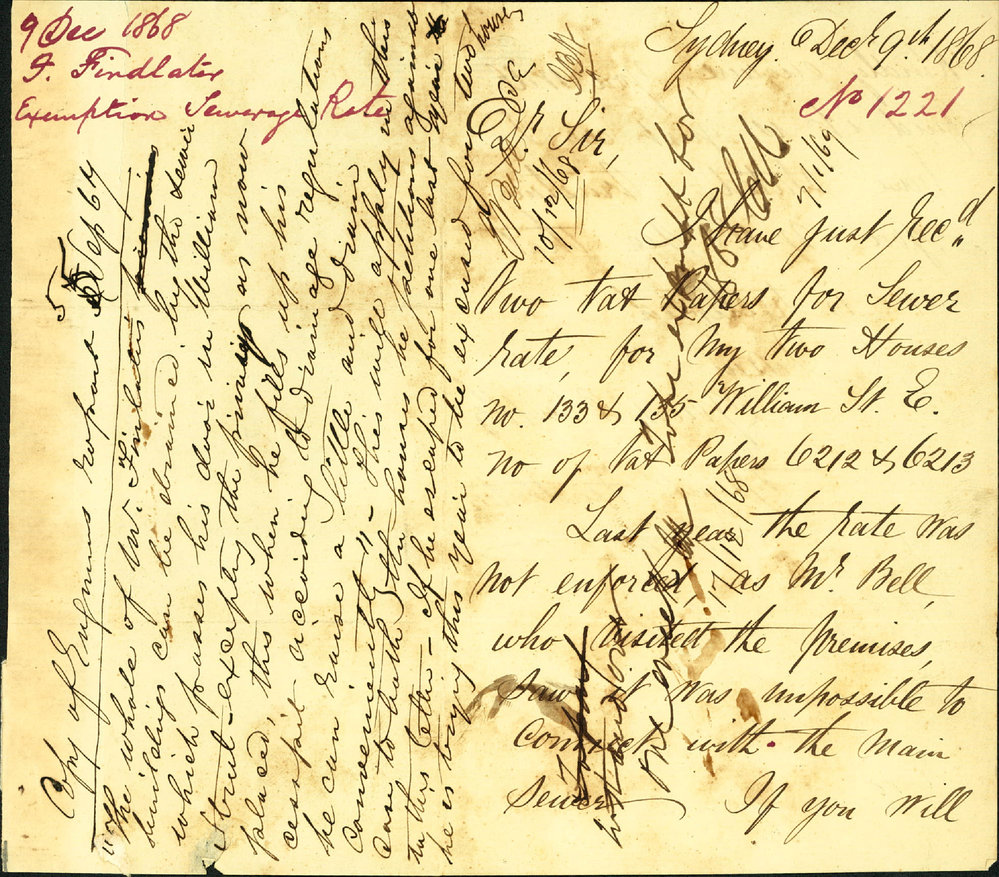 9 Dec 1868
F. Findlater
Exemption Sewerage Rate
Sydney Decr 9th 1868.
No 1221
Dr Sir,
I Have just Recd
two tax Papers for Sewer
rate, for My two Houses
no. 133 & 135 William St. E.
no of tax Papers 6212 & 6213
Last year the rate was
not enforced as Mr Bell,
who visited the premises,
saw it was impossible to
connect with the main
Sewer If you will
Copy of Engrs report 5 Sep 67
"The whole of Mr Findlater's
buildings can be drained by the sewer
which passes his door in William
Street excepting the privies as now
placed, this when he fills up his
cesspit according to drainage regulations
he can raise a little and drain
conveniently" - This will apply in this
case to both the houses he petitions against
in this letter - If he escaped for one last year
he is trying this year to be excused for two houses
10/12/68
17/12/68
7/1/69